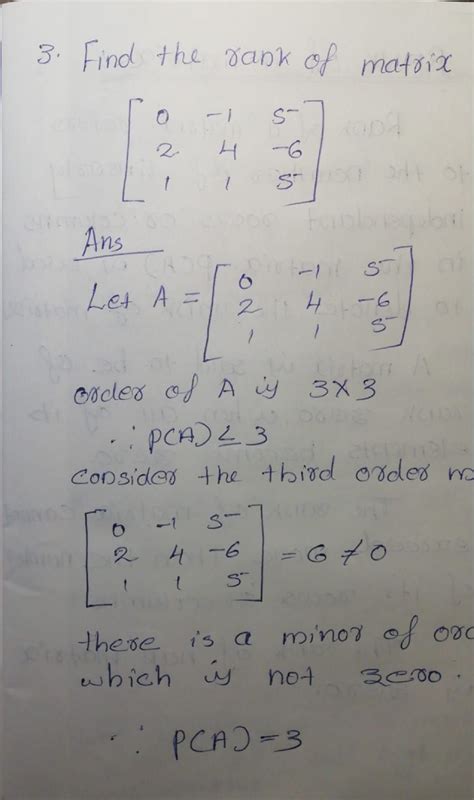 3. Find the rank of matrix
[ 0 -1 5
2 4 -6
1 1 5 ]
Ans
Let A = [ 0 -1 5
2 4 -6
1 1 5 ]
order of A is 3×3
∴ P(A) ≤ 3
Consider the third order
[ 0 -1 5
2 4 -6
1 1 5 ] = 6 ≠ 0
there is a minor of
which is not zero.
∴ P(A) = 3